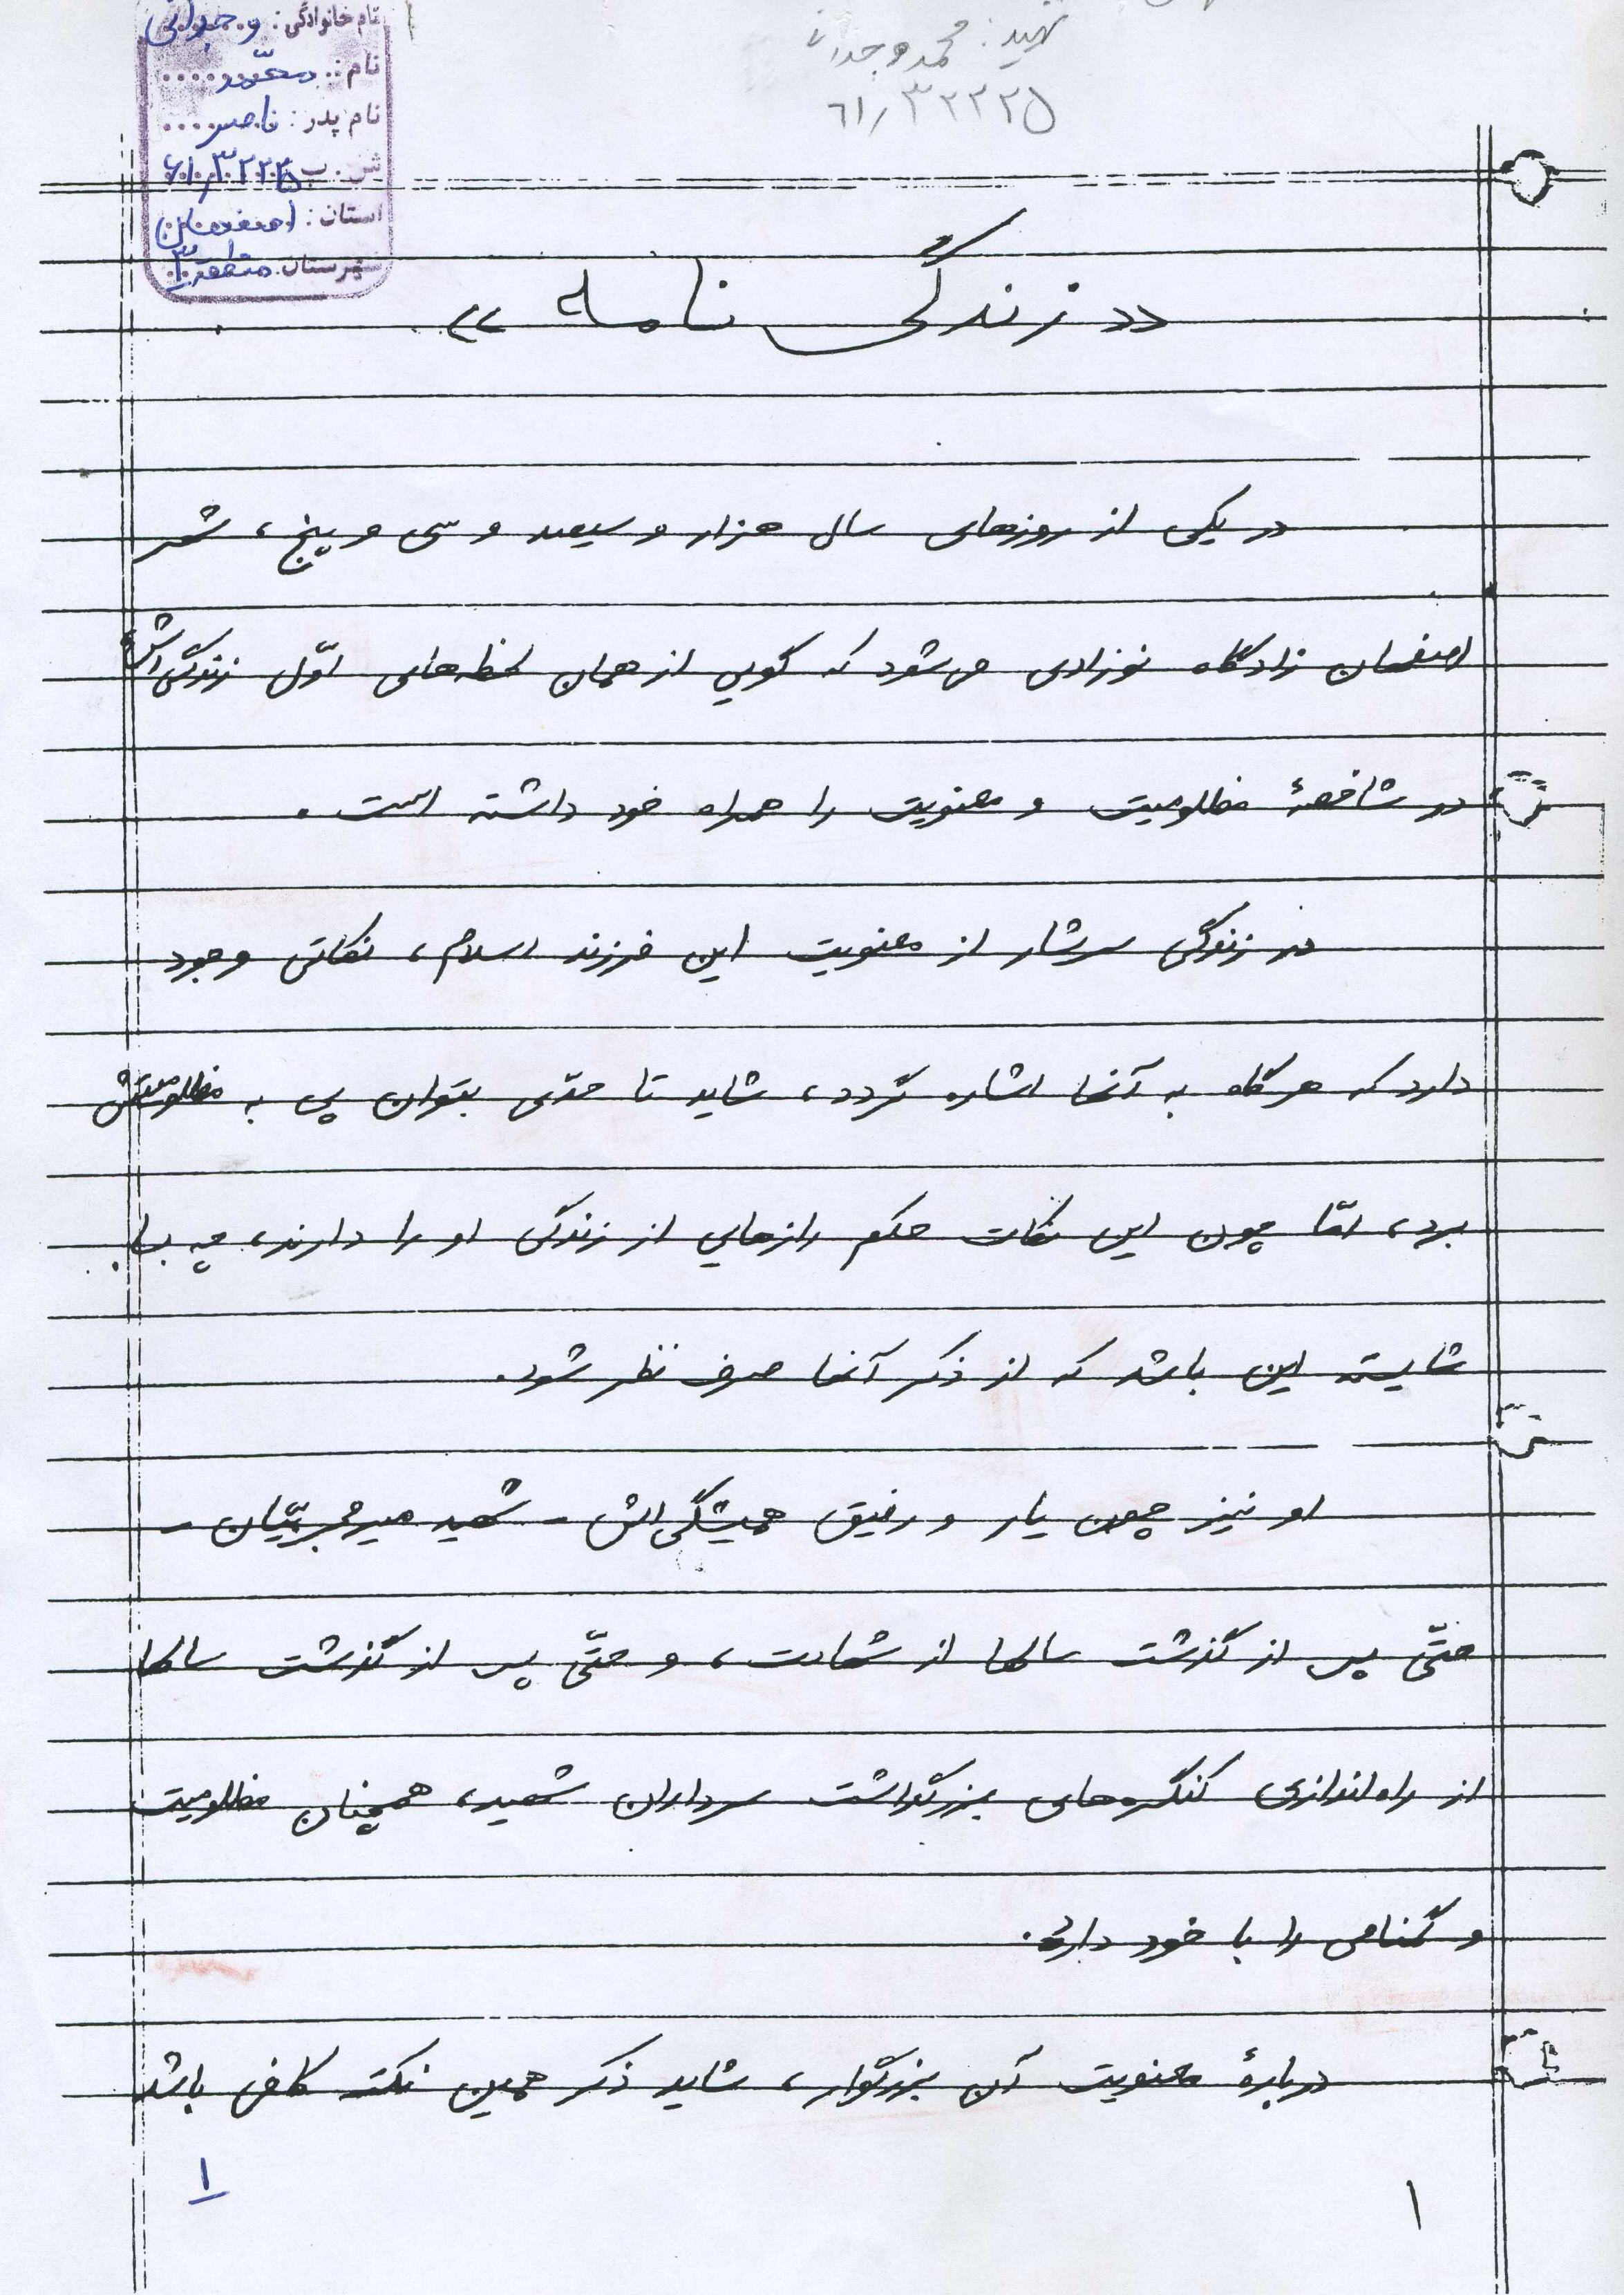 نام خانوادگی: وجدانی
نام: محمد
نام پدر: ناصر
ش. ب ۶۱/۳۲۲۲۵
استان: اصفهان
شهرستان: منطقه ۳
شهید: محمد وجدانی
۶۱/۳۲۲۲۵
«زندگی نامه»
در یکی از روزهای سال هزار و سیصد و سی و پنج، شهر
اصفهان زادگاه نوزادی می‌شود که گویی از همان لحظه‌های اوّل زندگی‌اش
دو شاخصهٔ مظلومیت و معنویت را همراه خود داشته است.
در زندگی سرشار از معنویت این فرزند اسلام، نکاتی وجود
دارد که هرگاه به آنها اشاره گردد، شاید تا حدّی بتوان پی به مظلومیتش
برد، امّا چون این نکات حکم رازهایی از زندگی او را دارند، چه بسا
شایسته این باشد که از ذکر آنها صرف نظر شود.
او نیز چون یار و رفیق همیشگی‌اش - شهید میرمجربیّان -
حتّی پس از گذشت سالها از شهادت، و حتّی پس از گذشت سالها
از راه‌اندازی کنگره‌های بزرگداشت سرداران شهید، همچنان مظلومیت
و گمنامی را با خود دارد.
دربارهٔ معنویت آن بزرگوار، شاید ذکر همین نکته کافی باشد
۱
۱